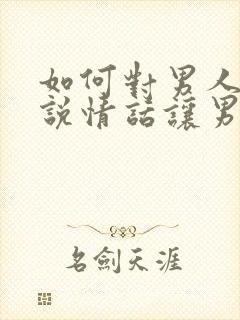 如何對男人
說情話讓男
名劍天涯